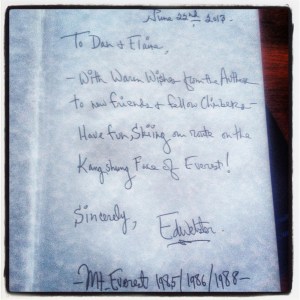 June 22nd 2013.
To Dan & Elaine,
-With Warm Wishes from the Author
to new friends & fellow Climbers-
Have fun Skiing en route on the
Kangshung Face of Everest!
Sincerely,
Ed Webster.
-Mt. Everest 1985/1986/1988-